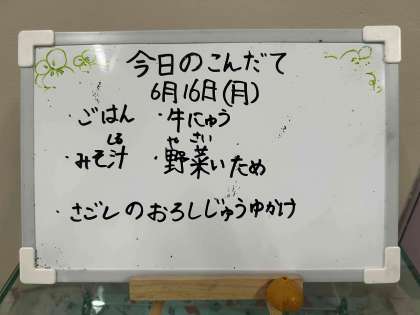 今日のこんだて
6月16日(月)
・ごはん ・牛にゅう
しる や さい
・みそ汁 ・野菜いため
・さごしのおろしじゅうゆかけ